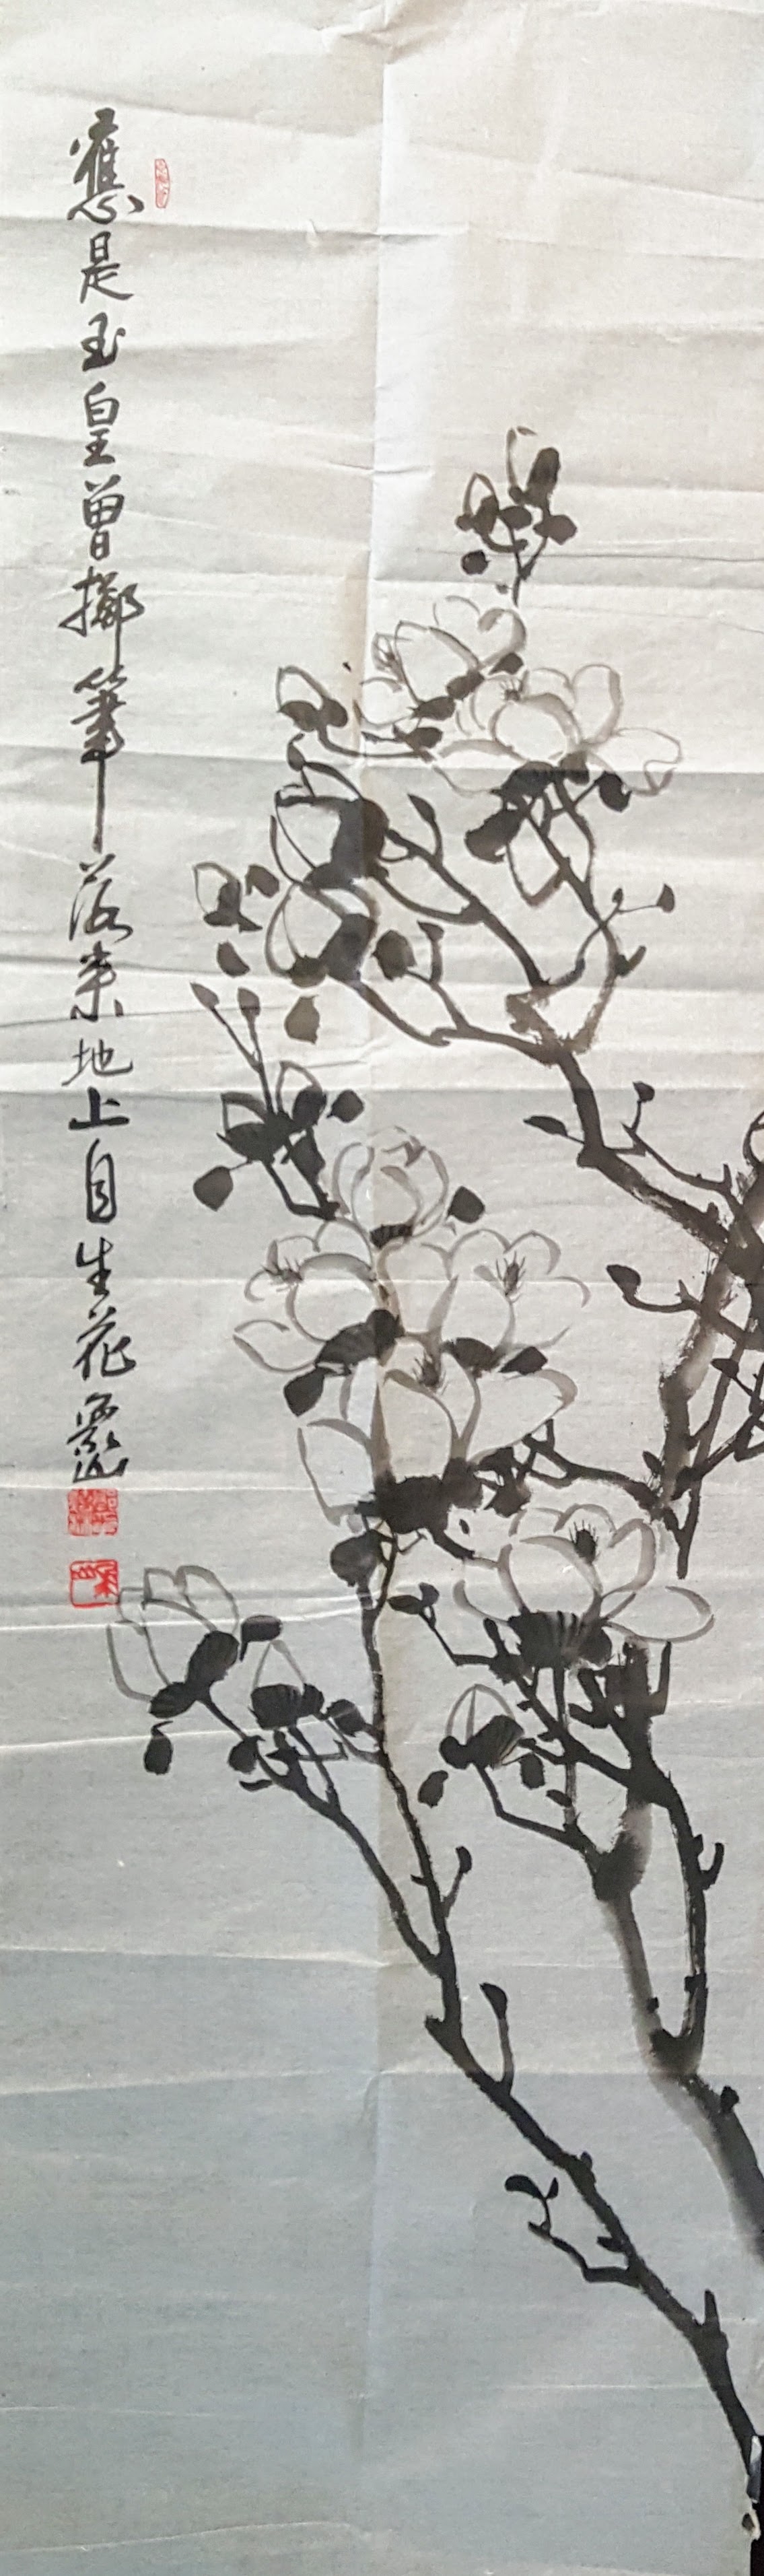 應是玉皇曾擲筆落來地上自生花